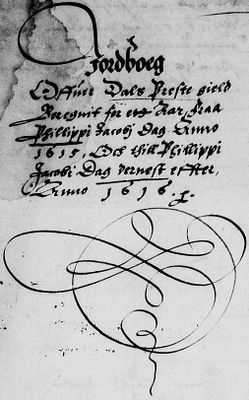 Jordboeg
Offuer Dals Preste gield
Beregnit for ett Aar, Fraa
Phillippi Jacobj Dag Anno
1615, Och thill Phillippi
Jacobi Dag dernest effter,
Anno 1616.